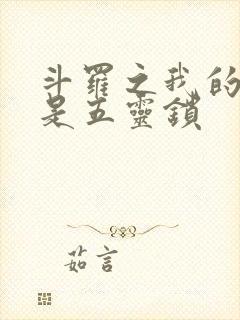 斗羅之我的
是五靈鎖
茹言